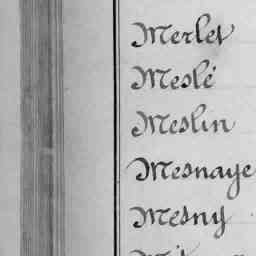 Merlet
Meslé
Meslin
Mesnaye
Mesny